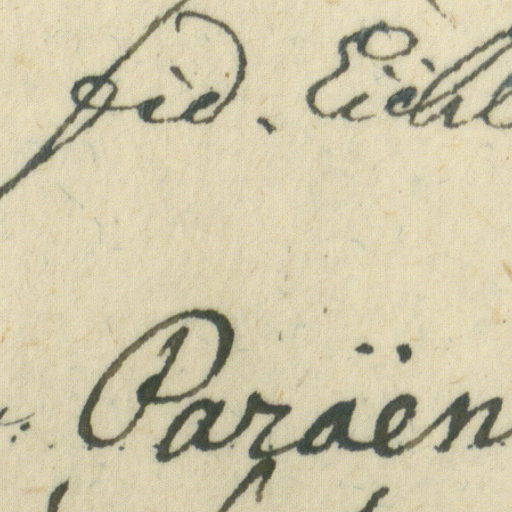 fid. Eichl
Paraën